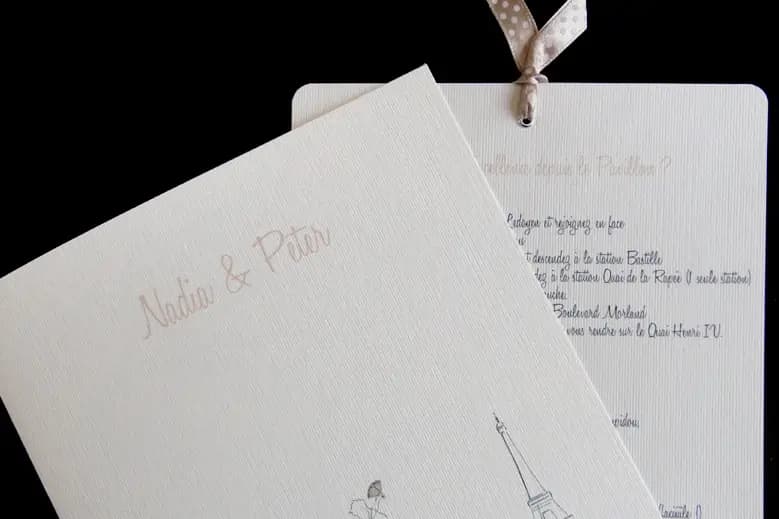 Nadia & Peter
depuis le Pavillon ?
Ledoyen et rejoignez en face
descendez à la station Bastille
à la station Quai de la Rapée (1 seule station)
Boulevard Morland
vous rendre sur le Quai Henri IV.